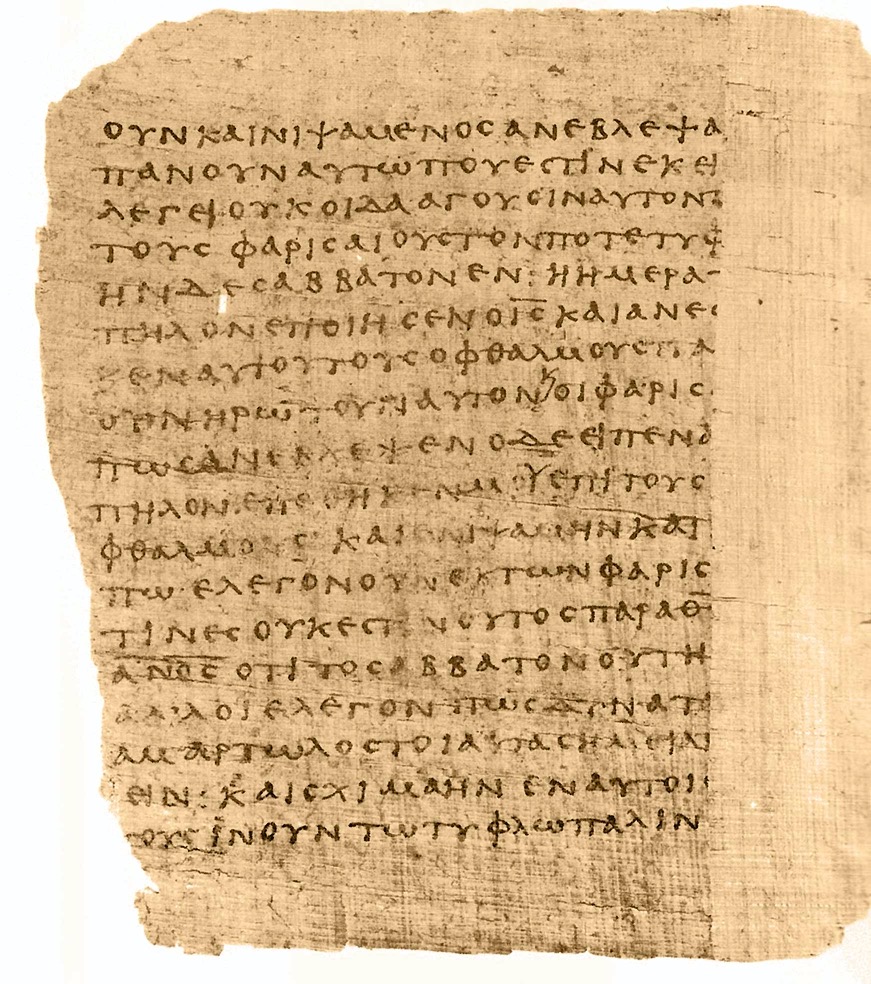 ΟΥΝΚΑΙΝΙΨΑΜΕΝΟϹΑΝΕΒΛΕΨΑ
ΠΑΝΟΥΝΑΥΤΩΠΟΥΕϹΤΙΝΕΚΕΙ
ΛΕΓΕΙΟΥΚΟΙΔΑΑΓΟΥϹΙΝΑΥΤΟΝ
ΤΟΥϹΦΑΡΙϹΑΙΟΥϹΤΟΝΠΟΤΕΤΥΦ
ΗΝΔΕϹΑΒΒΑΤΟΝΕΝ:ΗΗΜΕΡΑ
ΠΗΛΟΝΕΠΟΙΗϹΕΝΟΙ̅Ϲ̅ΚΑΙΑΝΕ
ΞΕΝΑΥΤΟΥΤΟΥϹΟΦΘΑΛΜΟΥϹΠΑ
ΟΥΝΗΡΩΤΟΥΝΑΥΤΟΝΟΙΦΑΡΙϹ
ΠΩϹΑΝΕΒΛΕΨΕΝΟΔΕΕΙΠΕΝΑ
ΠΗΛΟΝΕΠΕΘΗΚΕΝΜΟΥΕΠΙΤΟΥϹ
ΦΘΑΛΜΟΥϹΚΑΙΕΝΙΨΑΜΗΝΚΑΙ
ΠΩ·ΕΛΕΓΟΝΟΥΝΕΚΤΩΝΦΑΡΙϹ
ΤΙΝΕϹΟΥΚΕϹΤΙΝΟΥΤΟϹΠΑΡΑΘ̅
Α̅Ν̅Ο̅Ϲ̅ΟΤΙΤΟϹΑΒΒΑΤΟΝΟΥΤΗ
ΑΛΛΟΙΕΛΕΓΟΝΠΩϹΔΥΝΑΤΑ
ΑΜΑΡΤΩΛΟϹΤΟΙΑΥΤΑϹΗΜΕΙΑ
ΕΙΝ:ΚΑΙϹΧΙϹΜΑΗΝΕΝΑΥΤΟΙ
ΓΟΥϹΙΝΟΥΝΤΩΤΥΦΛΩΠΑΛΙΝ